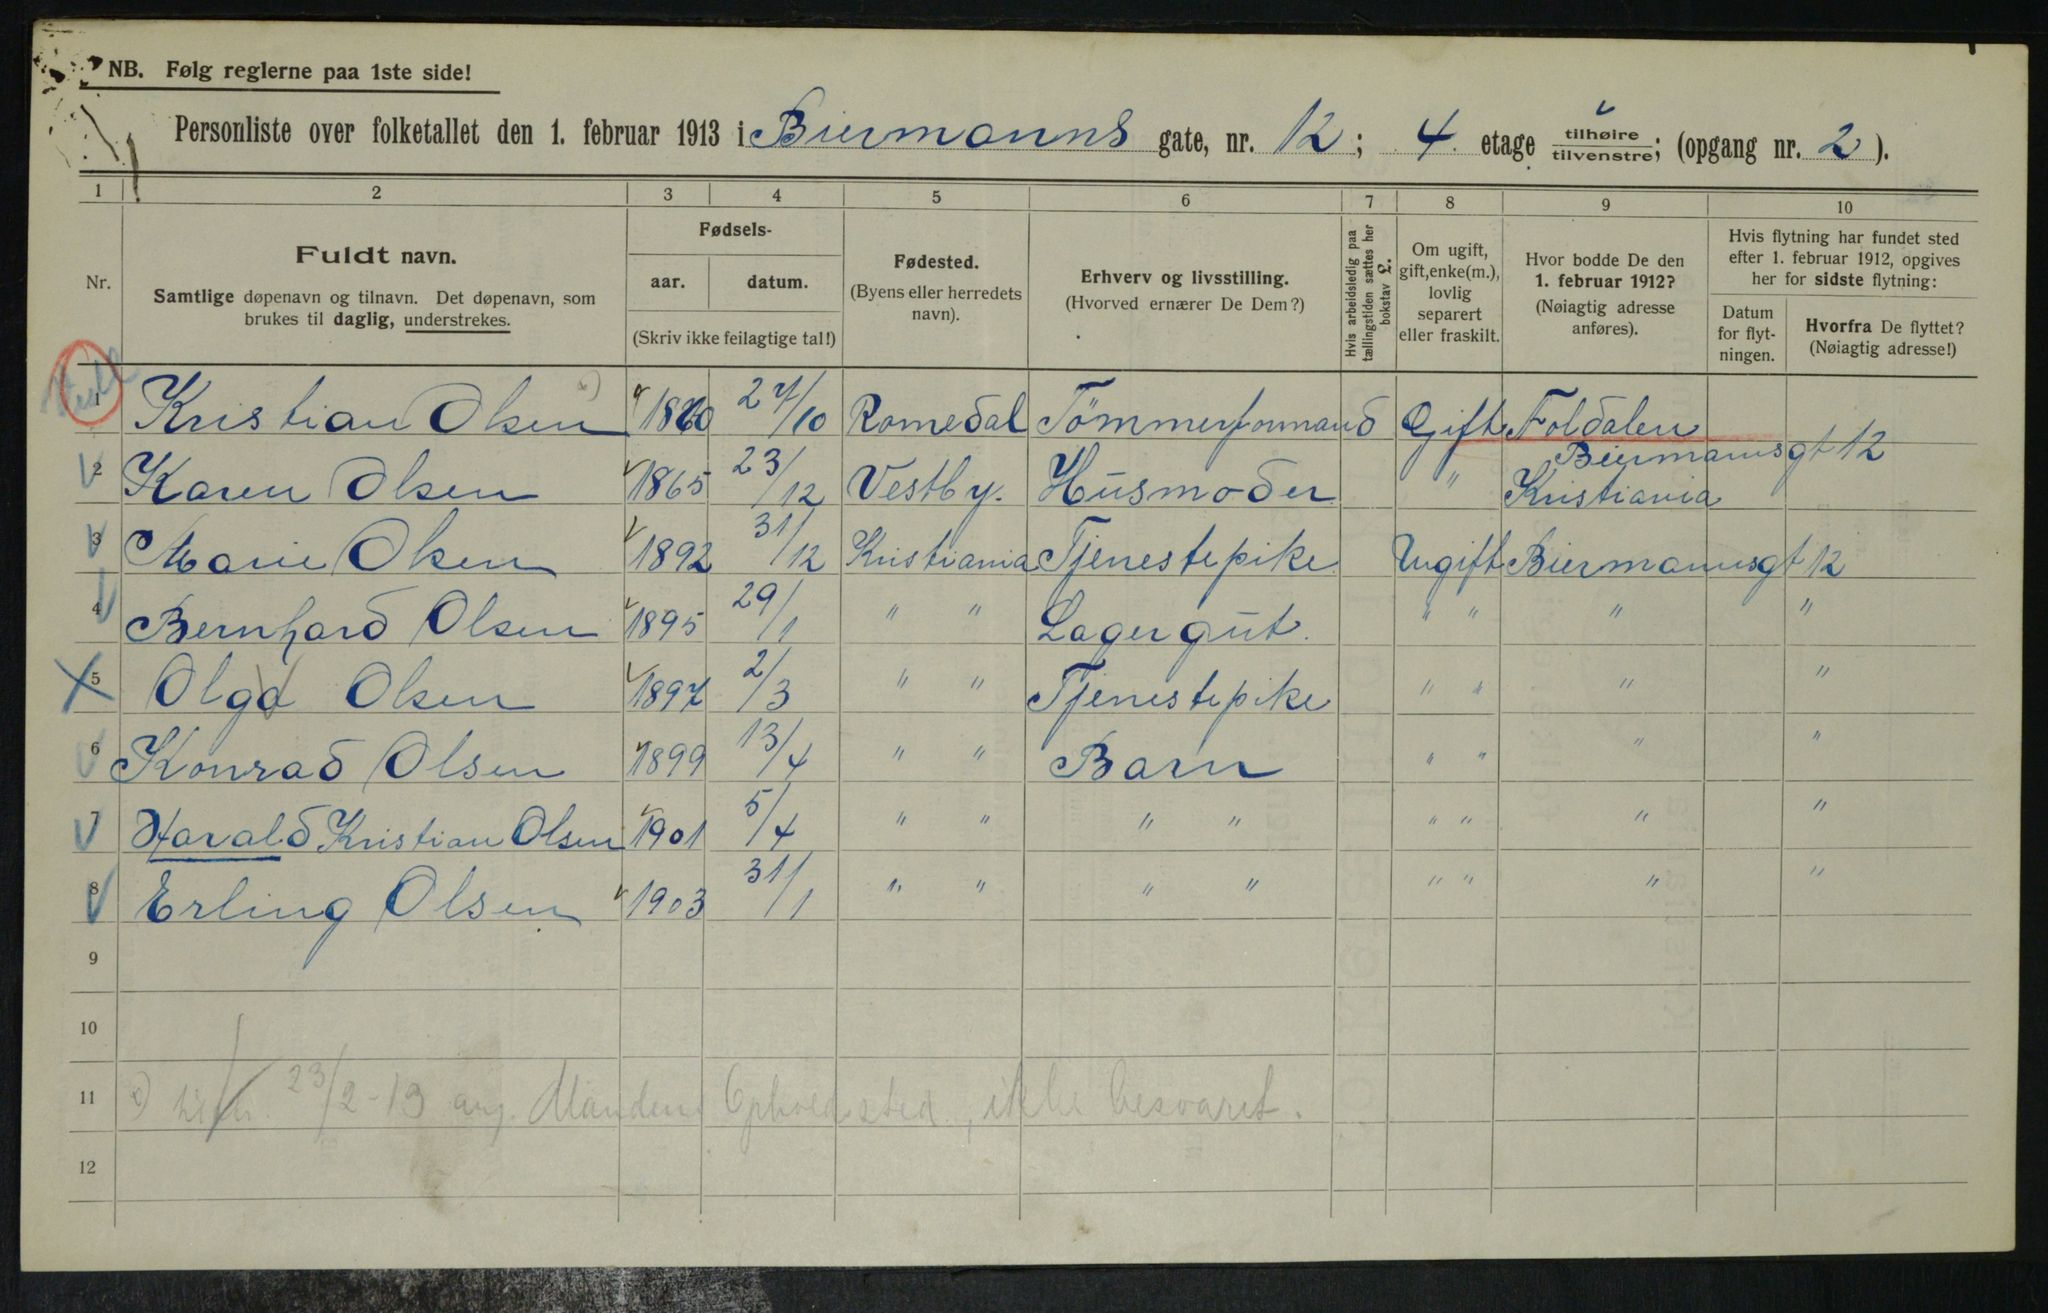 NB. Følg reglerne paa 1ste side!
Personliste over folketallet den 1. februar 1913 i Biermanns gate, nr. 12; 4 etage tilhøire/tilvenstre; (opgang nr. 2).
1 2 3 4 5 6 7 8 9 10
Nr.
Fuldt navn.
Samtlige døpenavn og tilnavn. Det døpenavn, som
brukes til daglig, understrekes.
Fødsels-
aar. datum.
(Skriv ikke feilagtige tal!)
Fødested.
(Byens eller herredets
navn).
Erhverv og livsstilling.
(Hvorved ernærer De Dem?)
Hvis arbeidsledig paa
tællingstiden sættes her
bokstav £.
Om ugift,
gift, enke(m.),
lovlig
separert
eller fraskilt.
Hvor bodde De den
1. februar 1912?
(Nøiagtig adresse
anføres).
Hvis flytning har fundet sted
efter 1. februar 1912, opgives
her for sidste flytning:
Datum
for flyt-
ningen.
Hvorfra De flyttet?
(Nøiagtig adresse!)
1 Kristian Olsen 1860 27/10 Romedal Tömmerformand Gift Foldalen
Biermannsgt 12
2 Karen Olsen 1865 23/12 Vestby. Husmoder " Kristiania
3 Marie Olsen 1892 31/12 Kristiania Tjenestepike Ugift Biermannsgt 12
4 Bernhard Olsen 1895 29/1 " " Lagergut. " " " "
5 Olga Olsen 1897 2/3 " " Tjenestepike " " " "
6 Konrad Olsen 1899 13/4 " " Barn " " " "
7 Harald Kristian Olsen 1901 5/4 " " " " " " " "
8 Erling Olsen 1903 31/1 " " " " " " " "
9
10
11 23/2-13 ang. Mandens Opholdssted, ikke besvaret.
12